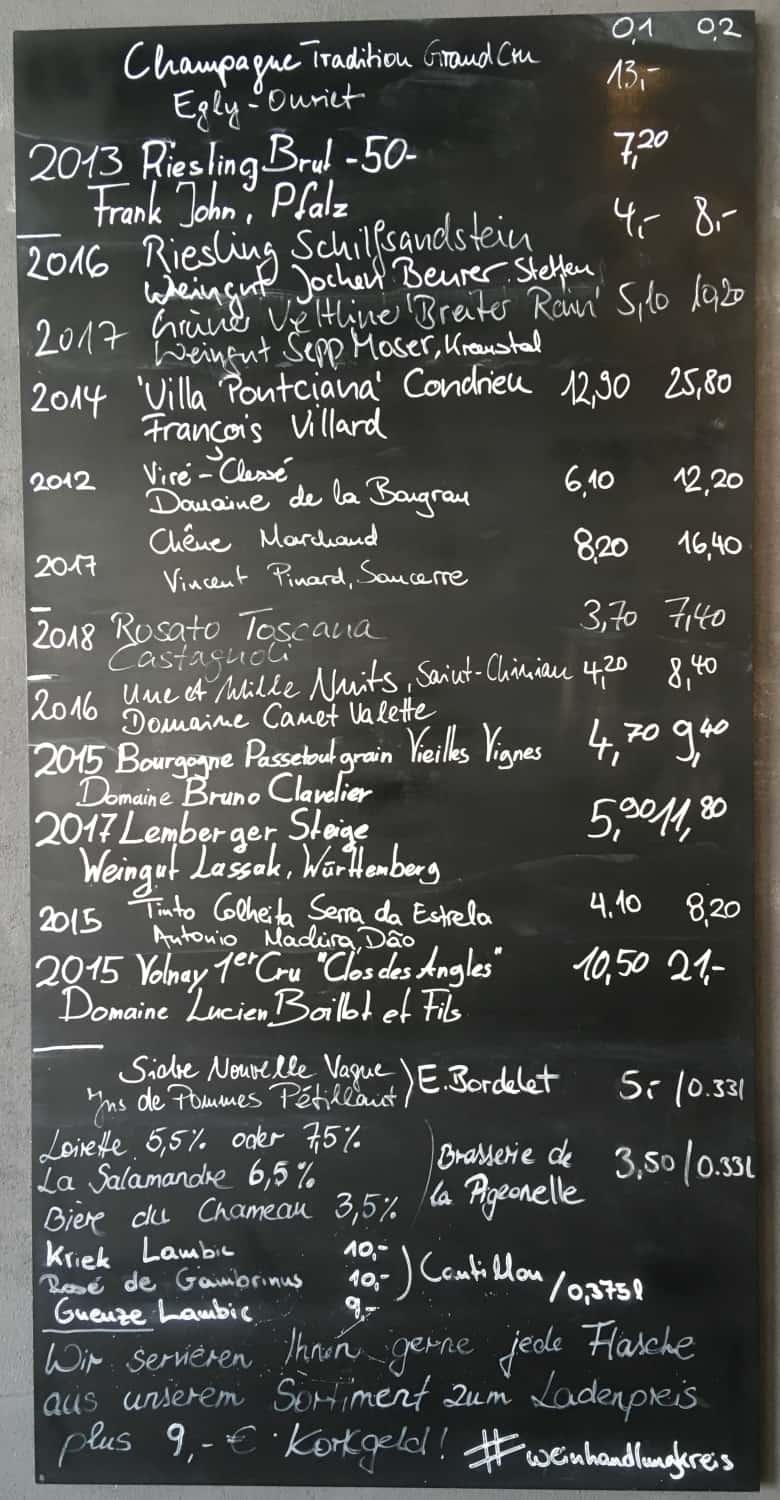 0,1 0,2
Champagne Tradition Grand Cru 13,-
Egly-Ouriet
2013 Riesling Brut -50- 7,20
Frank John, Pfalz
4,- 8,-
2016 Riesling Schilfsandstein
Weingut Jochen Beurer, Stetten
2017 Grüner Veltliner 'Breiter Rain' 5,10 10,20
Weingut Sepp Moser, Kremstal
2014 'Villa Pontciana' Condrieu 12,90 25,80
François Villard
2012 Viré-Clessé 6,10 12,20
Domaine de la Bongran
Chêne Marchand 8,20 16,40
2017 Vincent Pinard, Sancerre
2018 Rosato Toscana 3,70 7,40
Castagnoli
2016 Une et Mille Nuits, Saint-Chinian 4,20 8,40
Domaine Canet Valette
2015 Bourgogne Passetoutgrain Vieilles Vignes 4,70 9,40
Domaine Bruno Clavelier
2017 Lemberger Steige 5,90 11,80
Weingut Lassak, Württemberg
2015 Tinto Colheita Serra da Estrela 4,10 8,20
Antonio Madeira, Dão
2015 Volnay 1er Cru "Clos des Angles" 10,50 21,-
Domaine Lucien Boillot et Fils
Sidre Nouvelle Vague
Jus de Pommes Pétillant ) E. Bordelet 5,- /0.33l
Loirette 5,5% oder 7,5%
La Salamandre 6,5% Brasserie de 3,50/0.33L
Bière du Chameau 3,5% la Pigeonelle
Kriek Lambic 10,-
Rosé de Gambrinus 10,- ) Cantillon /0,375l
Gueuze Lambic 9,-
Wir servieren Ihnen gerne jede Flasche
aus unserem Sortiment zum Ladenpreis
plus 9,- € Korkgeld! #weinhandlungkreis